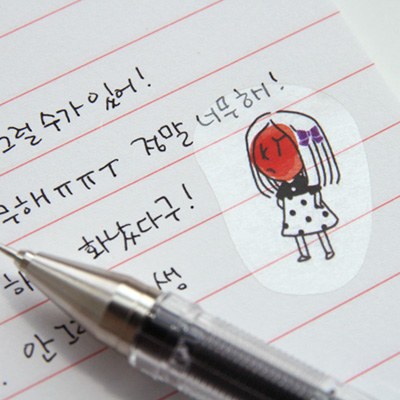 그럴 수가 있어!
무해ㅠㅠㅜ 정말 너무해!
화났다구!
하 생
안